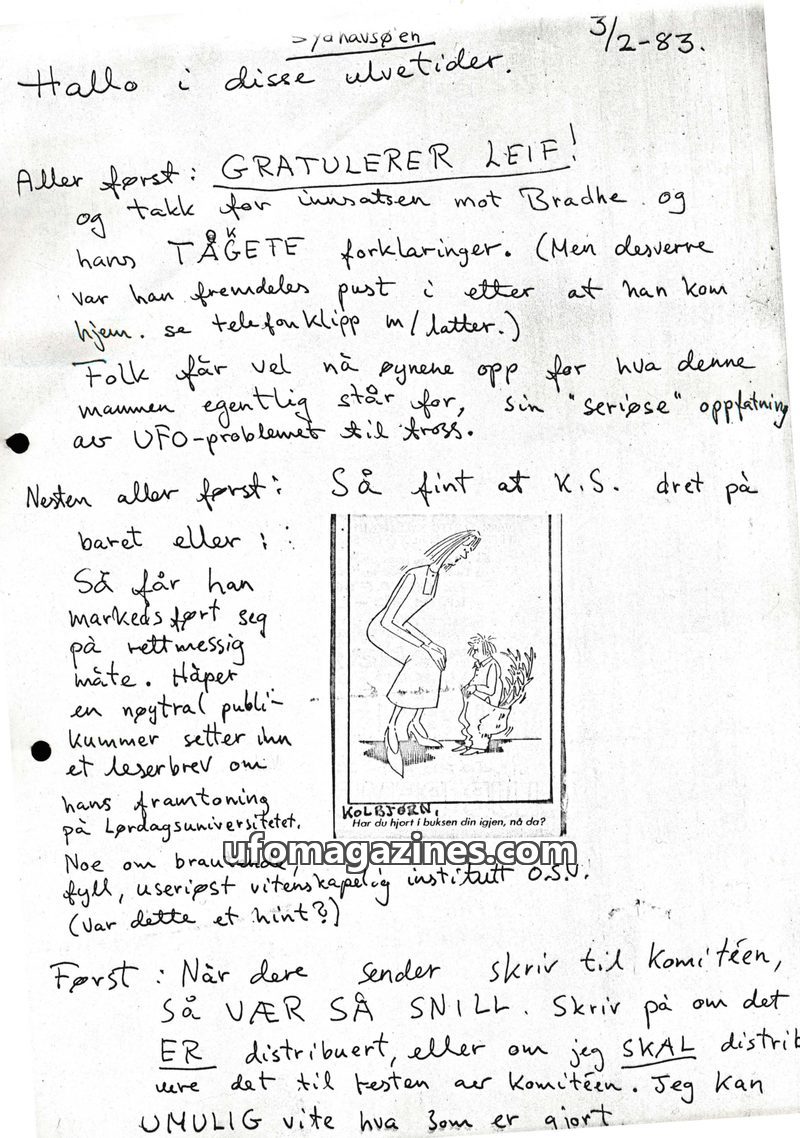 3/2-83.
Hallo i disse ulvetider.
Aller først: GRATULERER LEIF!
og takk for innsatsen mot Bradhe og
hans TÅKETE forklaringer. (Men desverre
var han fremdeles pust i etter at han kom
hjem. se telefonklipp m/latter.)
Folk får vel nå øynene opp for hva denne
mannen egentlig står for, sin "seriøse" oppfatning
av UFO-problemet til tross.
Nesten aller først: Så fint at K.S. dret på
baret eller:
Så får han
markedsført seg
på rettmessig
måte. Håper
en nøytral publi-
kummer setter inn
et leserbrev om
hans framtoning
på Lørdagsuniversitetet.
Noe om
fyll, useriøst vitenskapelig institutt O.S.V.
(var dette et hint?)
KOLBJØRN,
Har du hjort i buksen din igjen, nå da?
ufomagazines.com
Først: Når dere sender skriv til komitéen,
så VÆR SÅ SNILL. Skriv på om det
ER distribuert, eller om jeg SKAL distrib
uere det til resten av komitéen. Jeg kan
UMULIG vite hva som er gjort